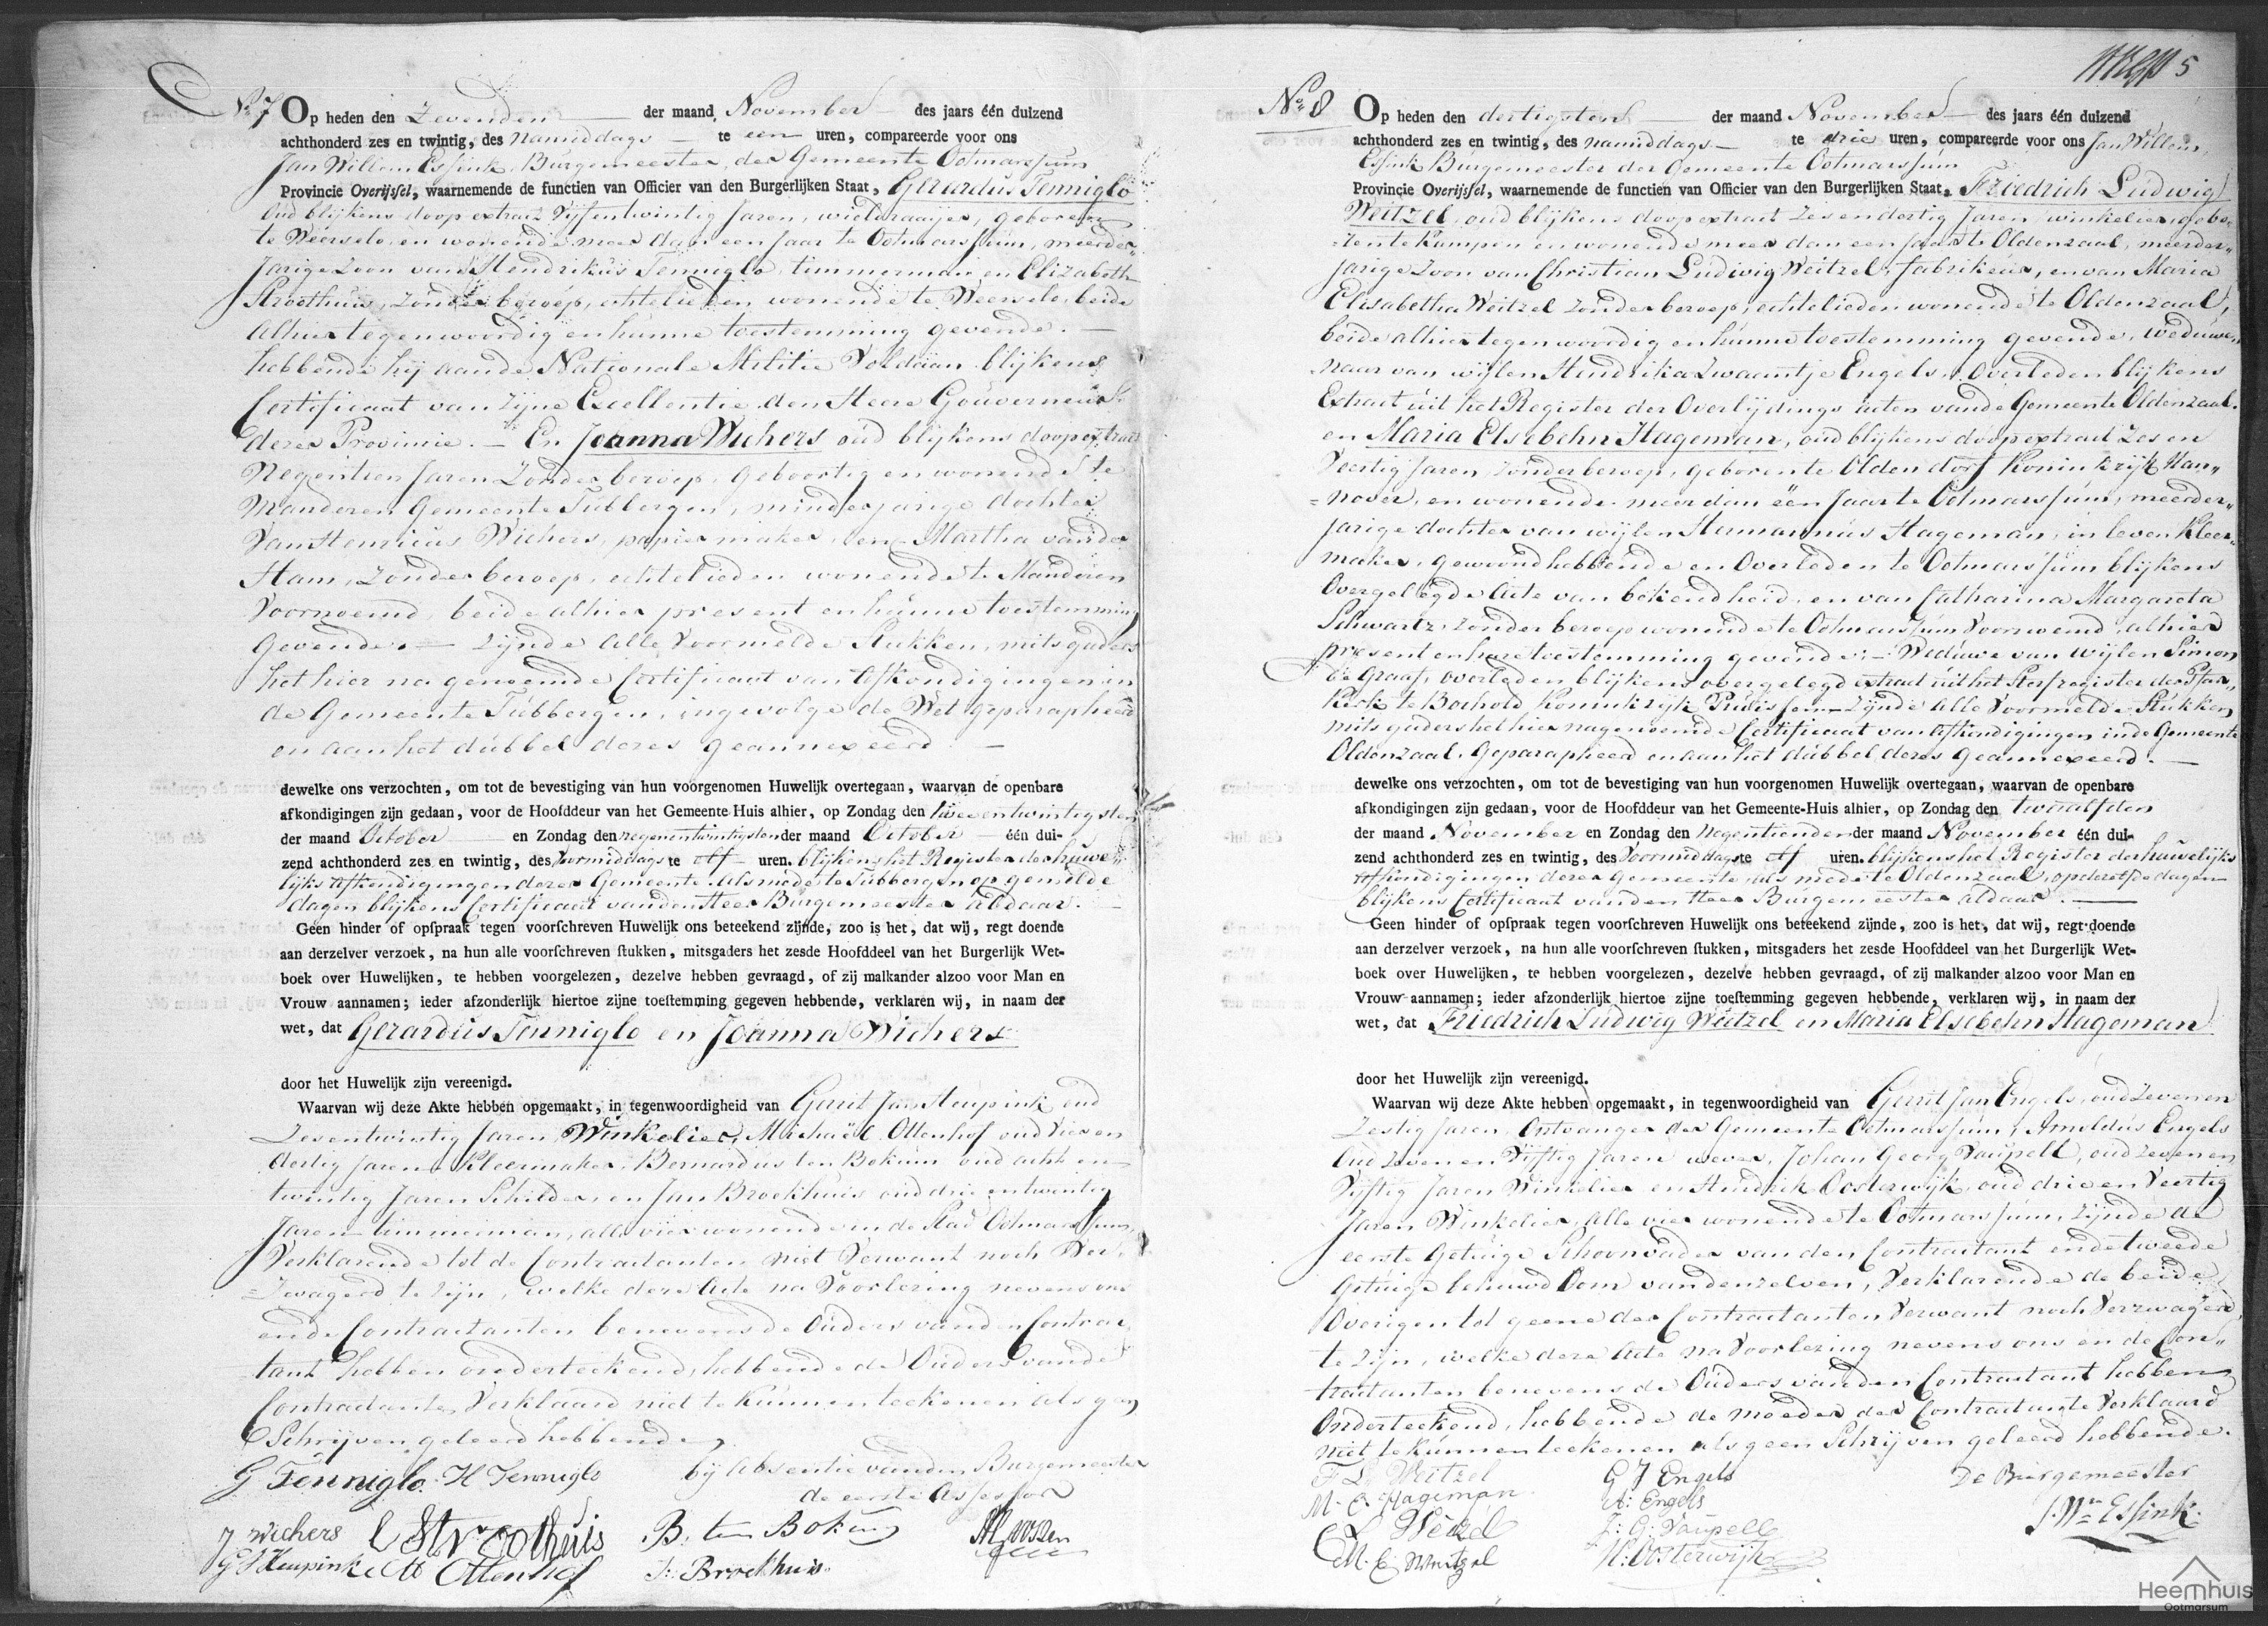 No 7 Op heden den Zevenden der maand November des jaars één duizend
achthonderd zes en twintig, des namiddags te een uren, compareerde voor ons
Jan Willem Essink, Burgemeester der Gemeente Ootmarssum
Provincie Overijssel, waarnemende de functien van Officier van den Burgerlijken Staat, Gerardus Tenniglo
Oud blijkens doop extract Vijfentwintig Jaren, wieldraayer, geboren
te Weerselo, en wonende meer dan een Jaar te Ootmarssum, meerder-
Jarige Zoon van Hendrikus Tenniglo, timmerman en Elizabeth
Stroothuis, zonder beroep, echtelieden wonende te Weerselo, beide
Alhier tegenwoordig en hunne toestemming gevende. —
hebbende hij aan de Nationale Militie Voldaan blijkens
Certificaat van Zijne Excellentie den Heere Gouverneur
dezer Provincie. — En Joanna Wichers oud blijkens doop extract
Negentien Jaren Zonder beroep, Geboortig en wonende te
Manderen Gemeente Tubbergen, minderjarige dochter
Van Henricus Wichers, papiermaker, en Martha van der
Ham, Zonder beroep, echtelieden wonende te Manderen
Voornoemd, beide alhier present en hunne toestemming
Gevende. — Zijnde Alle Voormelde Stukken, mitsgaders
het hier na genoemde Certificaat van Afkondigingen in
de Gemeente Tubbergen, ingevolge de Wet geparapheerd
en aan het dubbel dezes geannexeerd. —
dewelke ons verzochten, om tot de bevestiging van hun voorgenomen Huwelijk overtegaan, waarvan de openbare
afkondigingen zijn gedaan, voor de Hoofddeur van het Gemeente Huis alhier, op Zondag den tweeentwintigsten
der maand October en Zondag den negenentwintigsten der maand October één dui-
zend achthonderd zes en twintig, des Voormiddags te elf uren. blijkens het Register der huwe-
lijks Afkondigingen dezer Gemeente. Alsmede te Tubbergen op gemelde
dagen blijkens Certificaat van den Heer Burgemeester Aldaar. —
Geen hinder of opspraak tegen voorschreven Huwelijk ons beteekend zijnde, zoo is het, dat wij, regt doende
aan derzelver verzoek, na hun alle voorschreven stukken, mitsgaders het zesde Hoofddeel van het Burgerlijk Wet-
boek over Huwelijken, te hebben voorgelezen, dezelve hebben gevraagd, of zij malkander alzoo voor Man en
Vrouw aannamen; ieder afzonderlijk hiertoe zijne toestemming gegeven hebbende, verklaren wij, in naam der
wet, dat Gerardus Tenniglo en Joanna Wichers
door het Huwelijk zijn vereenigd.
Waarvan wij deze Akte hebben opgemaakt, in tegenwoordigheid van Gerrit Jan Heupink oud
Zesentwintig Jaren Winkelier, Michaël Ottenhof oud Vier en
dertig Jaren Kleermaker, Bernardus ten Bokum oud acht en
twintig Jaren Schilder, en Jan Broekhuis oud drie entwintig
Jaren timmerman, alle vier wonende in de Stad Ootmarssum,
Verklarende tot de Contractanten niet Verwant noch Ver-
zwagerd te zijn, welke deze Acte na Voorlezing nevens ons
en de Contractanten benevens de Ouders van den Contrac-
tant hebben onderteekend, hebbende de Ouders van de
Contractante Verklaard niet te kunnen teekenen als geen
Schrijven geleerd hebbende.
G Tenniglo. H Tenniglo bij Absentie van den Burgemeester
de eerste Assessor
J Wichers E Stroothuis B. ten Bokum
G J Heupink M Ottenhof J: Broekhuis.
5
No 8 Op heden den dertigsten der maand November des jaars één duizend
achthonderd zes en twintig, des namiddags te drie uren, compareerde voor ons Jan Willem
Essink Burgemeester der Gemeente Ootmarssum
Provincie Overijssel, waarnemende de functien van Officier van den Burgerlijken Staat, Friedrich Ludwig
Weitzel, oud blijkens doop extract Zesendertig Jaren, winkelier, gebo-
ren te Kampen en wonende meer dan een Jaar te Oldenzaal, meerder-
Jarige Zoon van Christian Ludwig Weitzel, fabrikeur, en van Maria
Elisabetha Weitzel zonder beroep, echtelieden wonende te Oldenzaal,
beide alhier tegenwoordig en hunne toestemming gevende, weduwe-
naar van wijlen Hendrika Zwaantje Engels, Overleden blijkens
Extract uit het Register der Overlijdings acten van de Gemeente Oldenzaal.
en Maria Elsebehn Hageman, oud blijkens doopextract Zes en
Veertig Jaren Zonder beroep, geboren te Oldendorf Koninkrijk Han-
nover, en wonende meer dan een Jaar te Ootmarssum, meerder-
jarige dochter van wijlen Hermannus Hageman, in leven Kleer-
maker, gewoond hebbende en Overleden te Ootmarssum blijkens
Overgelegde Acte van bekendheid, en van Catharina Margareta
Schwartz, zonder beroep wonende te Ootmarssum Voornoemd, alhier
present en hare toestemming gevende; — Weduwe van wijlen Simon
de Graaf, overleden blijkens overgelegd extract uit het Sterfregister der Par-
Kerk te Bocholt Koninkrijk Pruissen. — Zijnde Alle Voormelde Stukken
mitsgaders het hier nagenoemde Certificaat van Afkondigingen in de Gemeente
Oldenzaal, Geparapheerd en aan het dubbel dezes Geannexeerd. —
dewelke ons verzochten, om tot de bevestiging van hun voorgenomen Huwelijk overtegaan, waarvan de openbare
afkondigingen zijn gedaan, voor de Hoofddeur van het Gemeente-Huis alhier, op Zondag den twaalfden
der maand November en Zondag den Negentienden der maand November één dui-
zend achthonderd zes en twintig, des Voormiddags te elf uren. blijkens het Register der huwelijks
Afkondigingen dezer Gemeente, als mede te Oldenzaal, op dezelfde dagen
blijkens Certificaat van den Heer Burgemeester aldaar. —
Geen hinder of opspraak tegen voorschreven Huwelijk ons beteekend zijnde, zoo is het, dat wij, regt doende
aan derzelver verzoek, na hun alle voorschreven stukken, mitsgaders het zesde Hoofddeel van het Burgerlijk Wet-
boek over Huwelijken, te hebben voorgelezen, dezelve hebben gevraagd, of zij malkander alzoo voor Man en
Vrouw aannamen; ieder afzonderlijk hiertoe zijne toestemming gegeven hebbende, verklaren wij, in naam der
wet, dat Friedrich Ludwig Weitzel en Maria Elsebehn Hageman
door het Huwelijk zijn vereenigd.
Waarvan wij deze Akte hebben opgemaakt, in tegenwoordigheid van Gerrit Jan Engels, oud Zeven en
Zestig Jaren, Ontvanger der Gemeente Ootmarssum, Arnoldus Engels
Oud Zeven en Vijftig Jaren wever, Johan Georg Vaupell, oud Zeven en
Vijftig Jaren Winkelier en Hendrik Oosterwijk oud drie en Veertig
Jaren Winkelier, Alle vier wonende te Ootmarssum, zijnde de
eerste Getuige Schoonvader van den Contractant en de tweede
Getuige behuwd Oom van denzelven, Verklarende de beide
Overigen tot geene der Contractanten Verwant noch Verzwagerd
te zijn, welke deze Acte na Voorlezing nevens ons en de Con-
tractanten benevens de Ouders van den Contractant hebben
Onderteekend, hebbende de moeder der Contractante Verklaard
niet te kunnen teekenen als geen Schrijven geleerd hebbende.
F L Weitzel G J Engels De Burgemeester
M. E. Hageman A: Engels J. Wm Essink.
C L Weitzel J: G: Vaupell
M. E. Weitzel H: Oosterwijk
Heemhuis
Ootmarsum